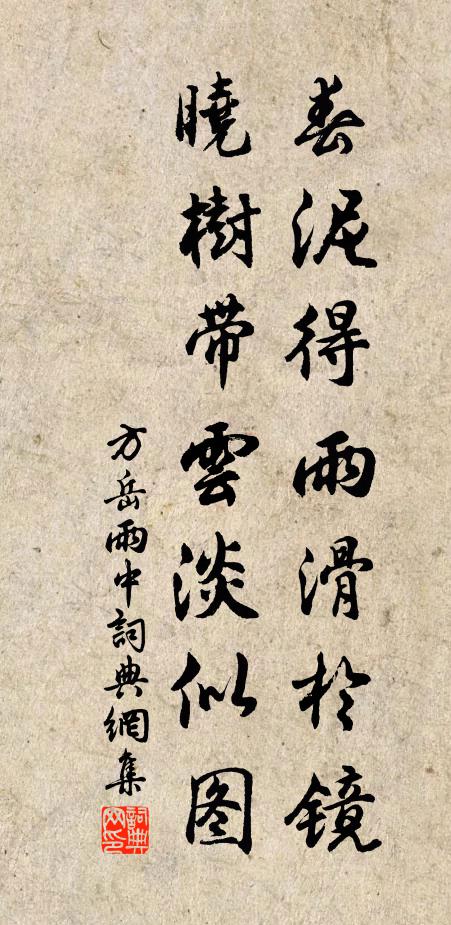 春泥得雨滑於镜
曉樹帶雲淡似图
方岳雨中詞典網集
詞典网印